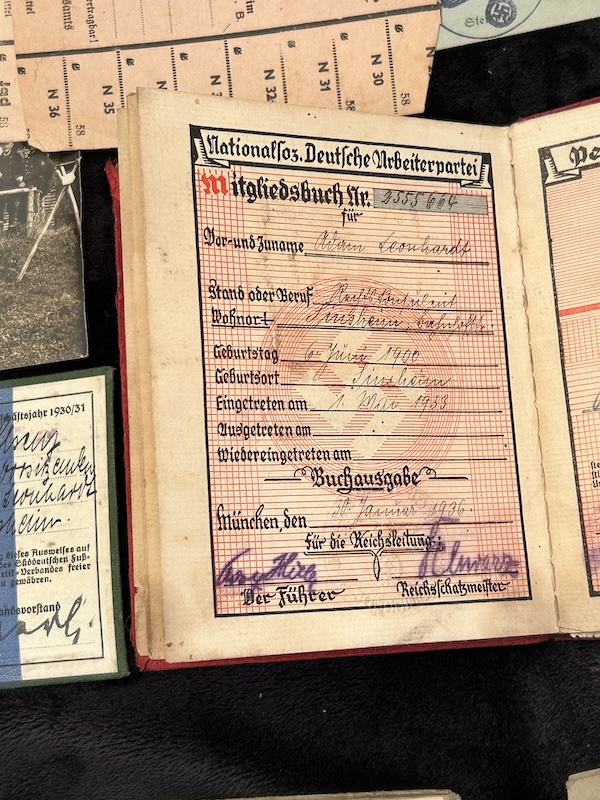 ttel
samts
ertragbar!
ttel
B.
58
N 36
N 35
N 32
N 31
N 30
58
58
Ste
Nationalsoz. Deutsche Arbeiterpartei
Mitgliedsbuch Nr. 2555664
für
Vor- und Zuname Adam Leonhardt
Stand oder Beruf Rechtskonsulent
Wohnort Sinsheim,
Geburtstag 6. Juni 1900
Geburtsort Sinsheim
Eingetreten am 1. Mai 1933
Ausgetreten am
Wiedereingetreten am
Buchausgabe
München, den 30. Januar 1936
Für die Reichsleitung:
Der Führer
Schwarz
Reichsschatzmeister
Pe
schäftsjahr 1930/31
Leonhardt
sheim.
dieses Ausweises auf
des Süddeutschen Fuß-
etik-Verbandes freier
zu gewähren.
andsvorstand